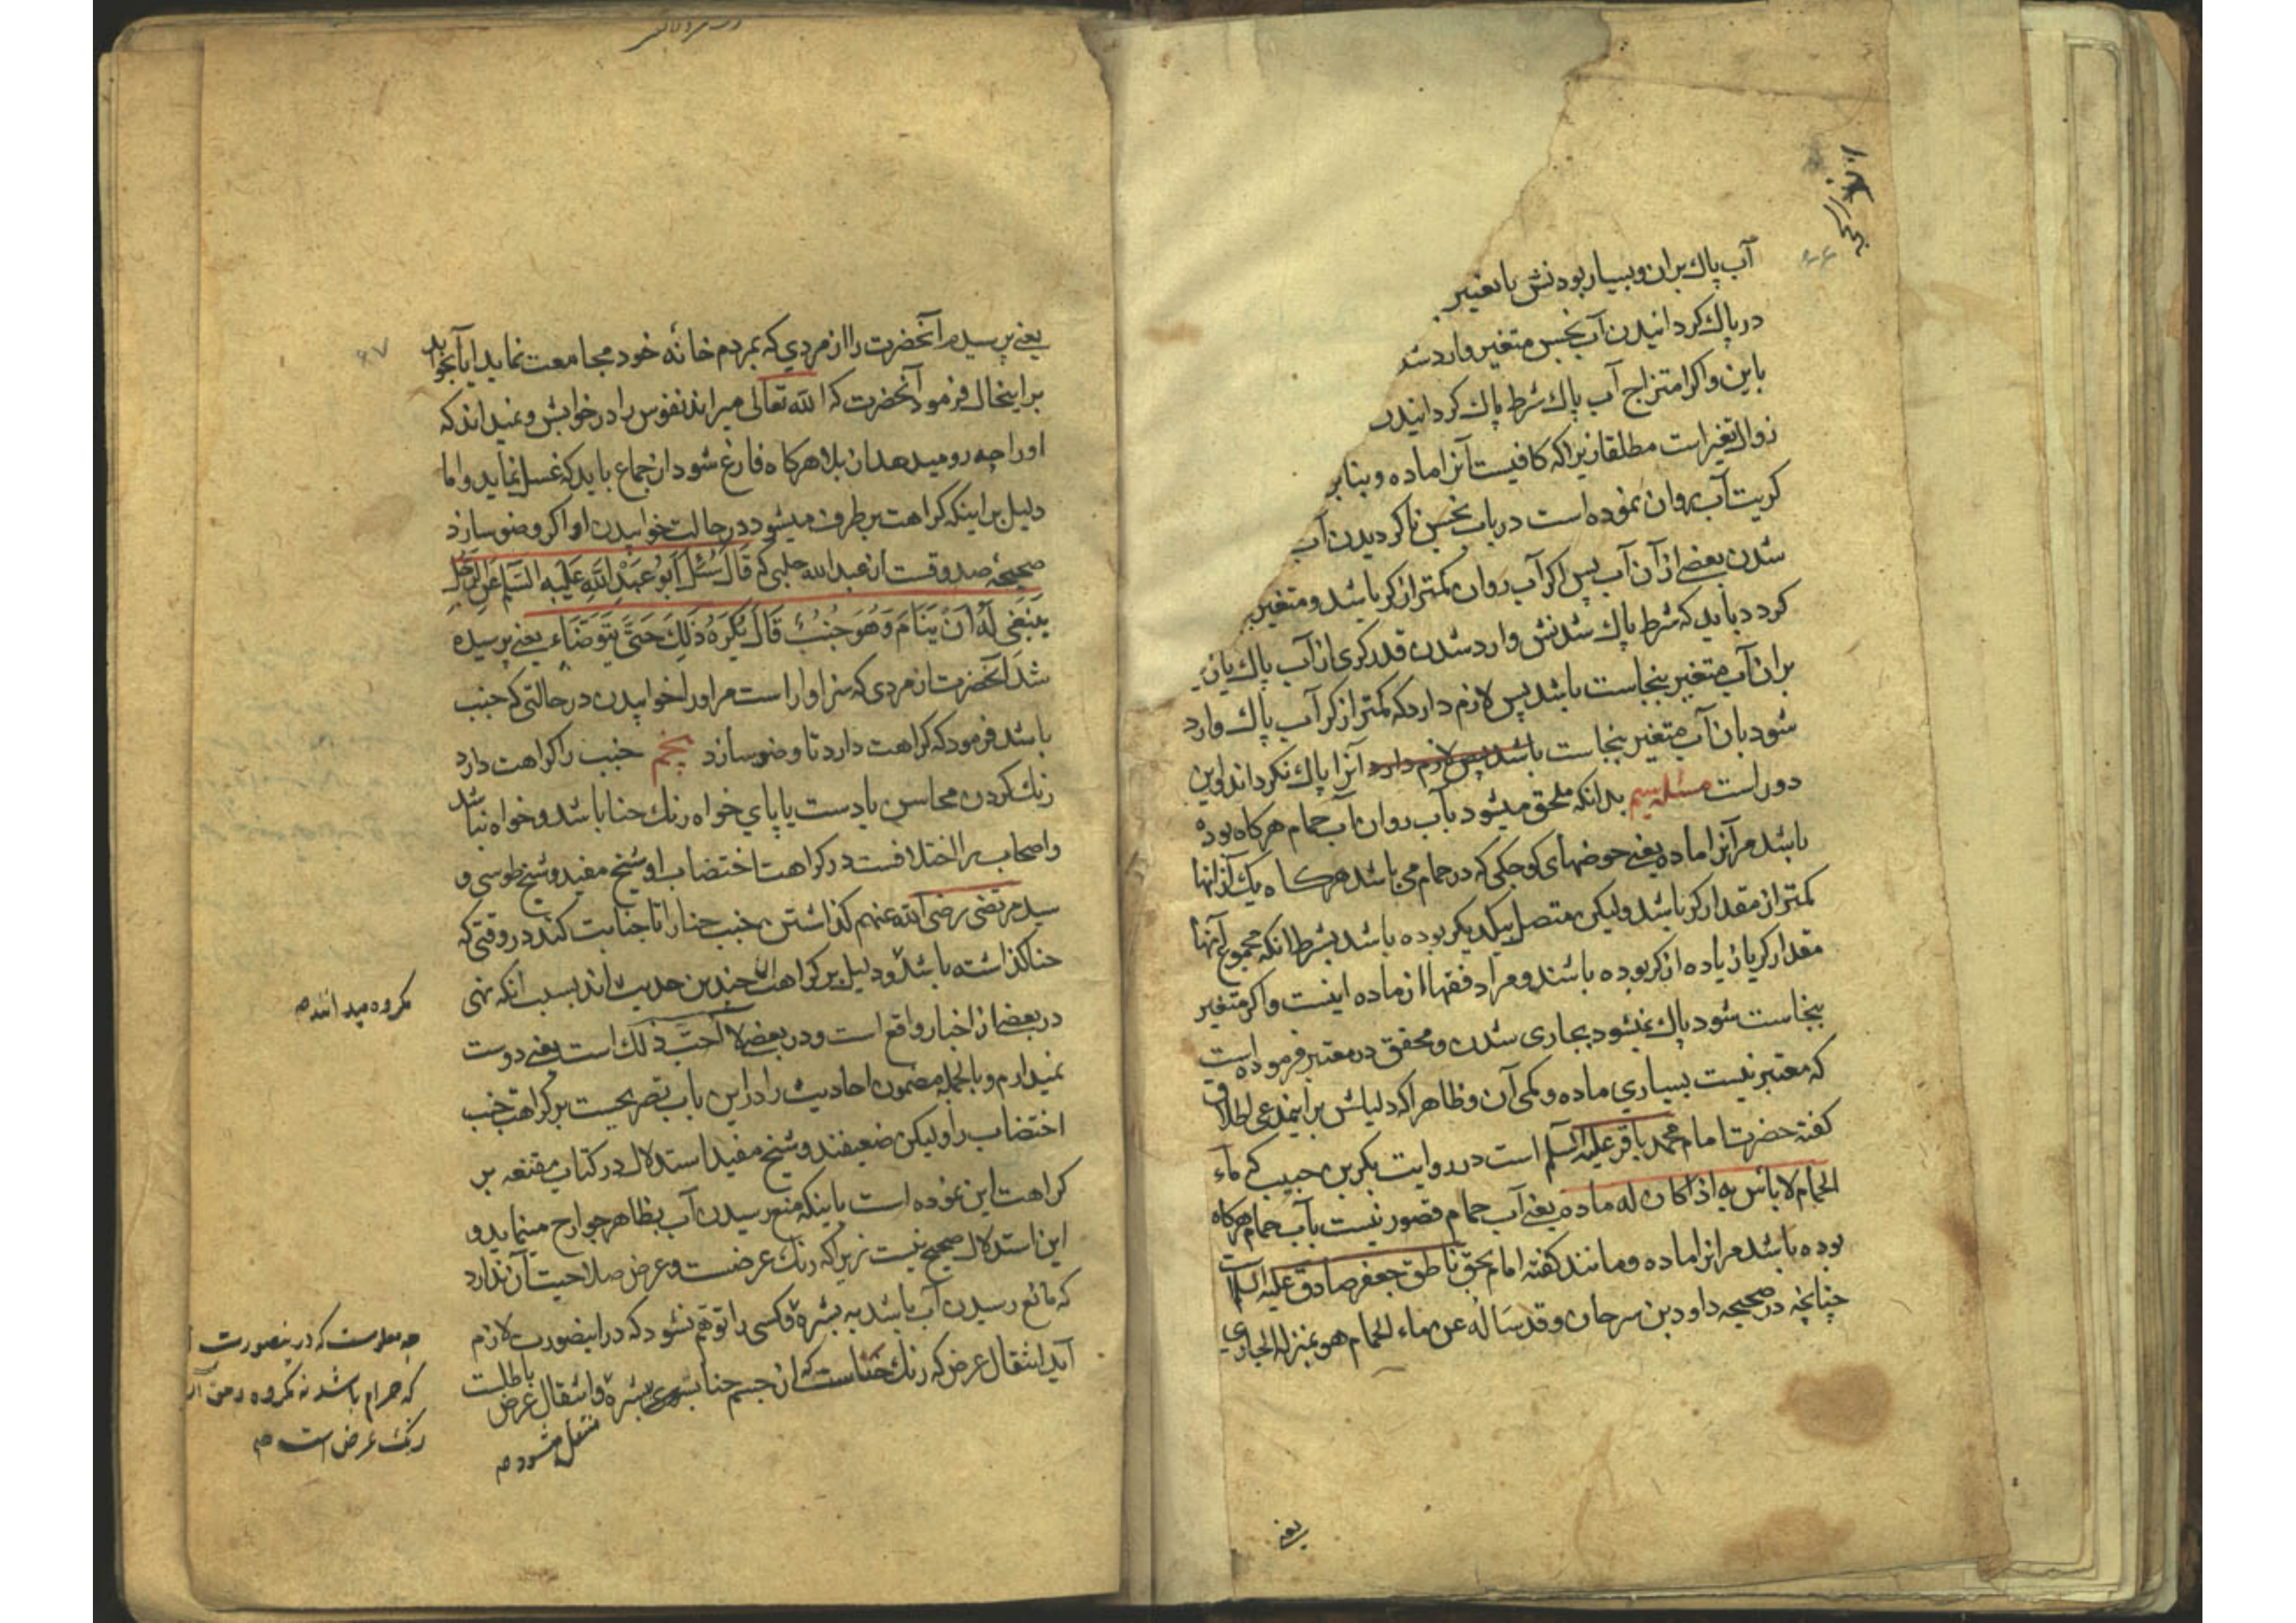 آب پاك بران و بسيار بودنش با تغيير
در پاك كردانيدن آب نجس متغير وارد شد
باين و اكر امتزاج آب پاك شرط پاك كردانيدن
زوال تغير است مطلقا زيرا كه كافيست آنرا ماده و بنابر
كريت آب روان نموده است در باب نجس ناكرديدن آب
شدن بعضى از آن آب پس اكر آب روان كمتر از كر باشد و متغير
كردد بايد كه شرط پاك شدنش وارد شدن قدر كرى از آب پاك
بران آب متغير بنجاست باشد پس لازم دارد كه كمتر از كر آب پاك وارد
شود بان آب متغير بنجاست باشد پس لازم دارد آنرا پاك نكرداند و اين
دور است مسئله سيم بدانكه ملحق ميشود بآب روان آب حمام هركاه بوده
باشد مر آنرا ماده يعنى حوضهاى كوچكى كه در حمام مى باشد هركاه يك از انها
كمتر از مقدار كر باشد و ليكن متصل بيكديكر بوده باشد بشرط انكه مجموع آنها
مقدار كر يا زياده از كر بوده باشند و مراد فقها از ماده اينست و اكر متغير
بنجاست شود پاك نميشود بجارى شدن و محقق در معتبر فرموده است
كه معتبر نيست بسياري ماده و كمى آن و ظاهرا كه دليلش بر اينمدعى اطلاق
كفته حضرت امام محمد باقر عليه السلم است در روايت بكر بن حبيب كه ماء
الحمام لا باس به اذا كان له ماده يعنى آب حمام قصور نيست بآب حمام هركاه
بوده باشد مر انرا ماده و مانند كفته امام بحق ناطق جعفر صادق عليه السلام است
چنانچه در صحيحه داود بن سرحان وقد سَاَلهُ عن ماء الحمام هو بمنزله الجاري
يعنى
٦٧
يعنى پرسيدم آنحضرت را از مردي كه بمردم خانه خود مجامعت نمايد ايا بخوابد
بر اينحال فرمود آنحضرت كه الله تعالى ميراند نفوس را در خوابش و نميداند كه
او را چه رو ميدهد از بلا هركاه فارغ شود از جماع بايد كه غسل نمايد و اما
دليل بر اينكه كراهت بر طرف ميشود در حالت خوابيدن او اكر وضو سازد
صحيحه صدوقست از عبد الله حلبي كه قَالَ سُئِلَ اَبُو عَبْدِ اللهِ عَلَيه السَّلم عَنِ الرَّجُلِ
يَنبَغِى لَهُ اَنْ يَنَامَ وَهُوَ جُنبٌ قَالَ يُكرَهُ ذلِكَ حَتّى يَتوَضَاَء يعنى پرسيده
شد آنحضرت از مردى كه سزاوار است مر او را خوابيدن در حالتى كه جنب
باشد فرمود كه كراهت دارد تا وضو سازد پنجم جنب را كراهت دارد
رنك كردن محاسن يا دست يا پاي خواه رنك حنا باشد و خواه نباشد
و اصحاب را اختلافست در كراهت اختضاب او شيخ مفيد و شيخ طوسى و
سيد مرتضى رضى الله عنهم كذاشتن جنب حنا را تا جنابت كند در وقتى كه
حنا كذاشته باشد و دليل بر كراهت ان چندين حديث اند بسبب انكه نهى
در بعضى از اخبار واقع است و در بعضى لا اُحبّ ذلك است يعنى دوست
نميدارم و بالجمله مضمون احاديث را در اين باب تصريحست بر كراهت جنب
اختضاب را و ليكن ضعيفند و شيخ مفيد استدلال در كتاب مقنعه بر
كراهت اين نموده است باينكه منع رسيدن آب بظاهر جوارح مينمايد و
اين استدلال صحيح نيست زيرا كه رنك عرضست و عرض صلاحيت آن ندارد
كه مانع رسيدن آب باشد به بشره و كسى را توهّم نشود كه در اينصورت لازم
آيد انتقال عرض كه رنك حناست كه از جسم حنا بسوى بشره و انتقال عرض باطلست
منتقل مشود
مكروه ميداند
چه معلومست كه در ينصورت
كه حرام باشد نه مكروه
رنك عرض است